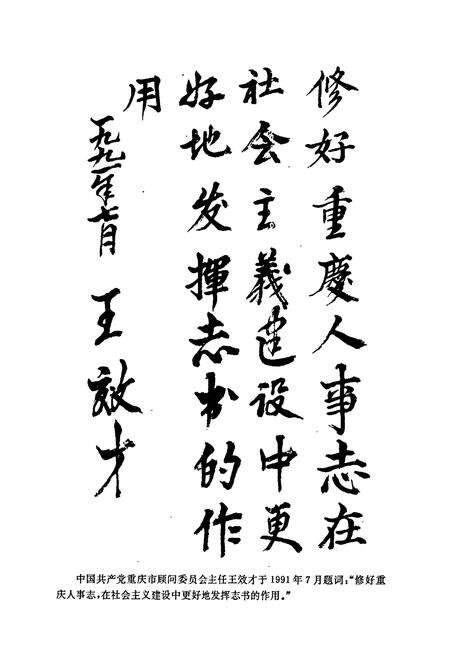 修好重慶人事志在
社会主義建设中更
好地发揮志书的作
用
一九九一年七月
王效才
中国共产党重庆市顾问委员会主任王效才于1991年7月题词:“修好重
庆人事志,在社会主义建设中更好地发挥志书的作用。”